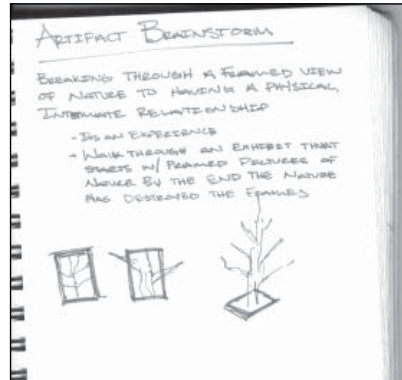 ARTIFACT BRAINSTORM
BREAKING THROUGH A FRAMED VIEW
OF NATURE TO HAVING A PHYSICAL,
INTIMATE RELATIONSHIP
- AS AN EXPERIENCE
→ WALK THROUGH AN EXHIBIT THAT
STARTS W/ FRAMED PICTURES OF
NATURE BY THE END THE NATURE
HAS DESTROYED THE FRAMES